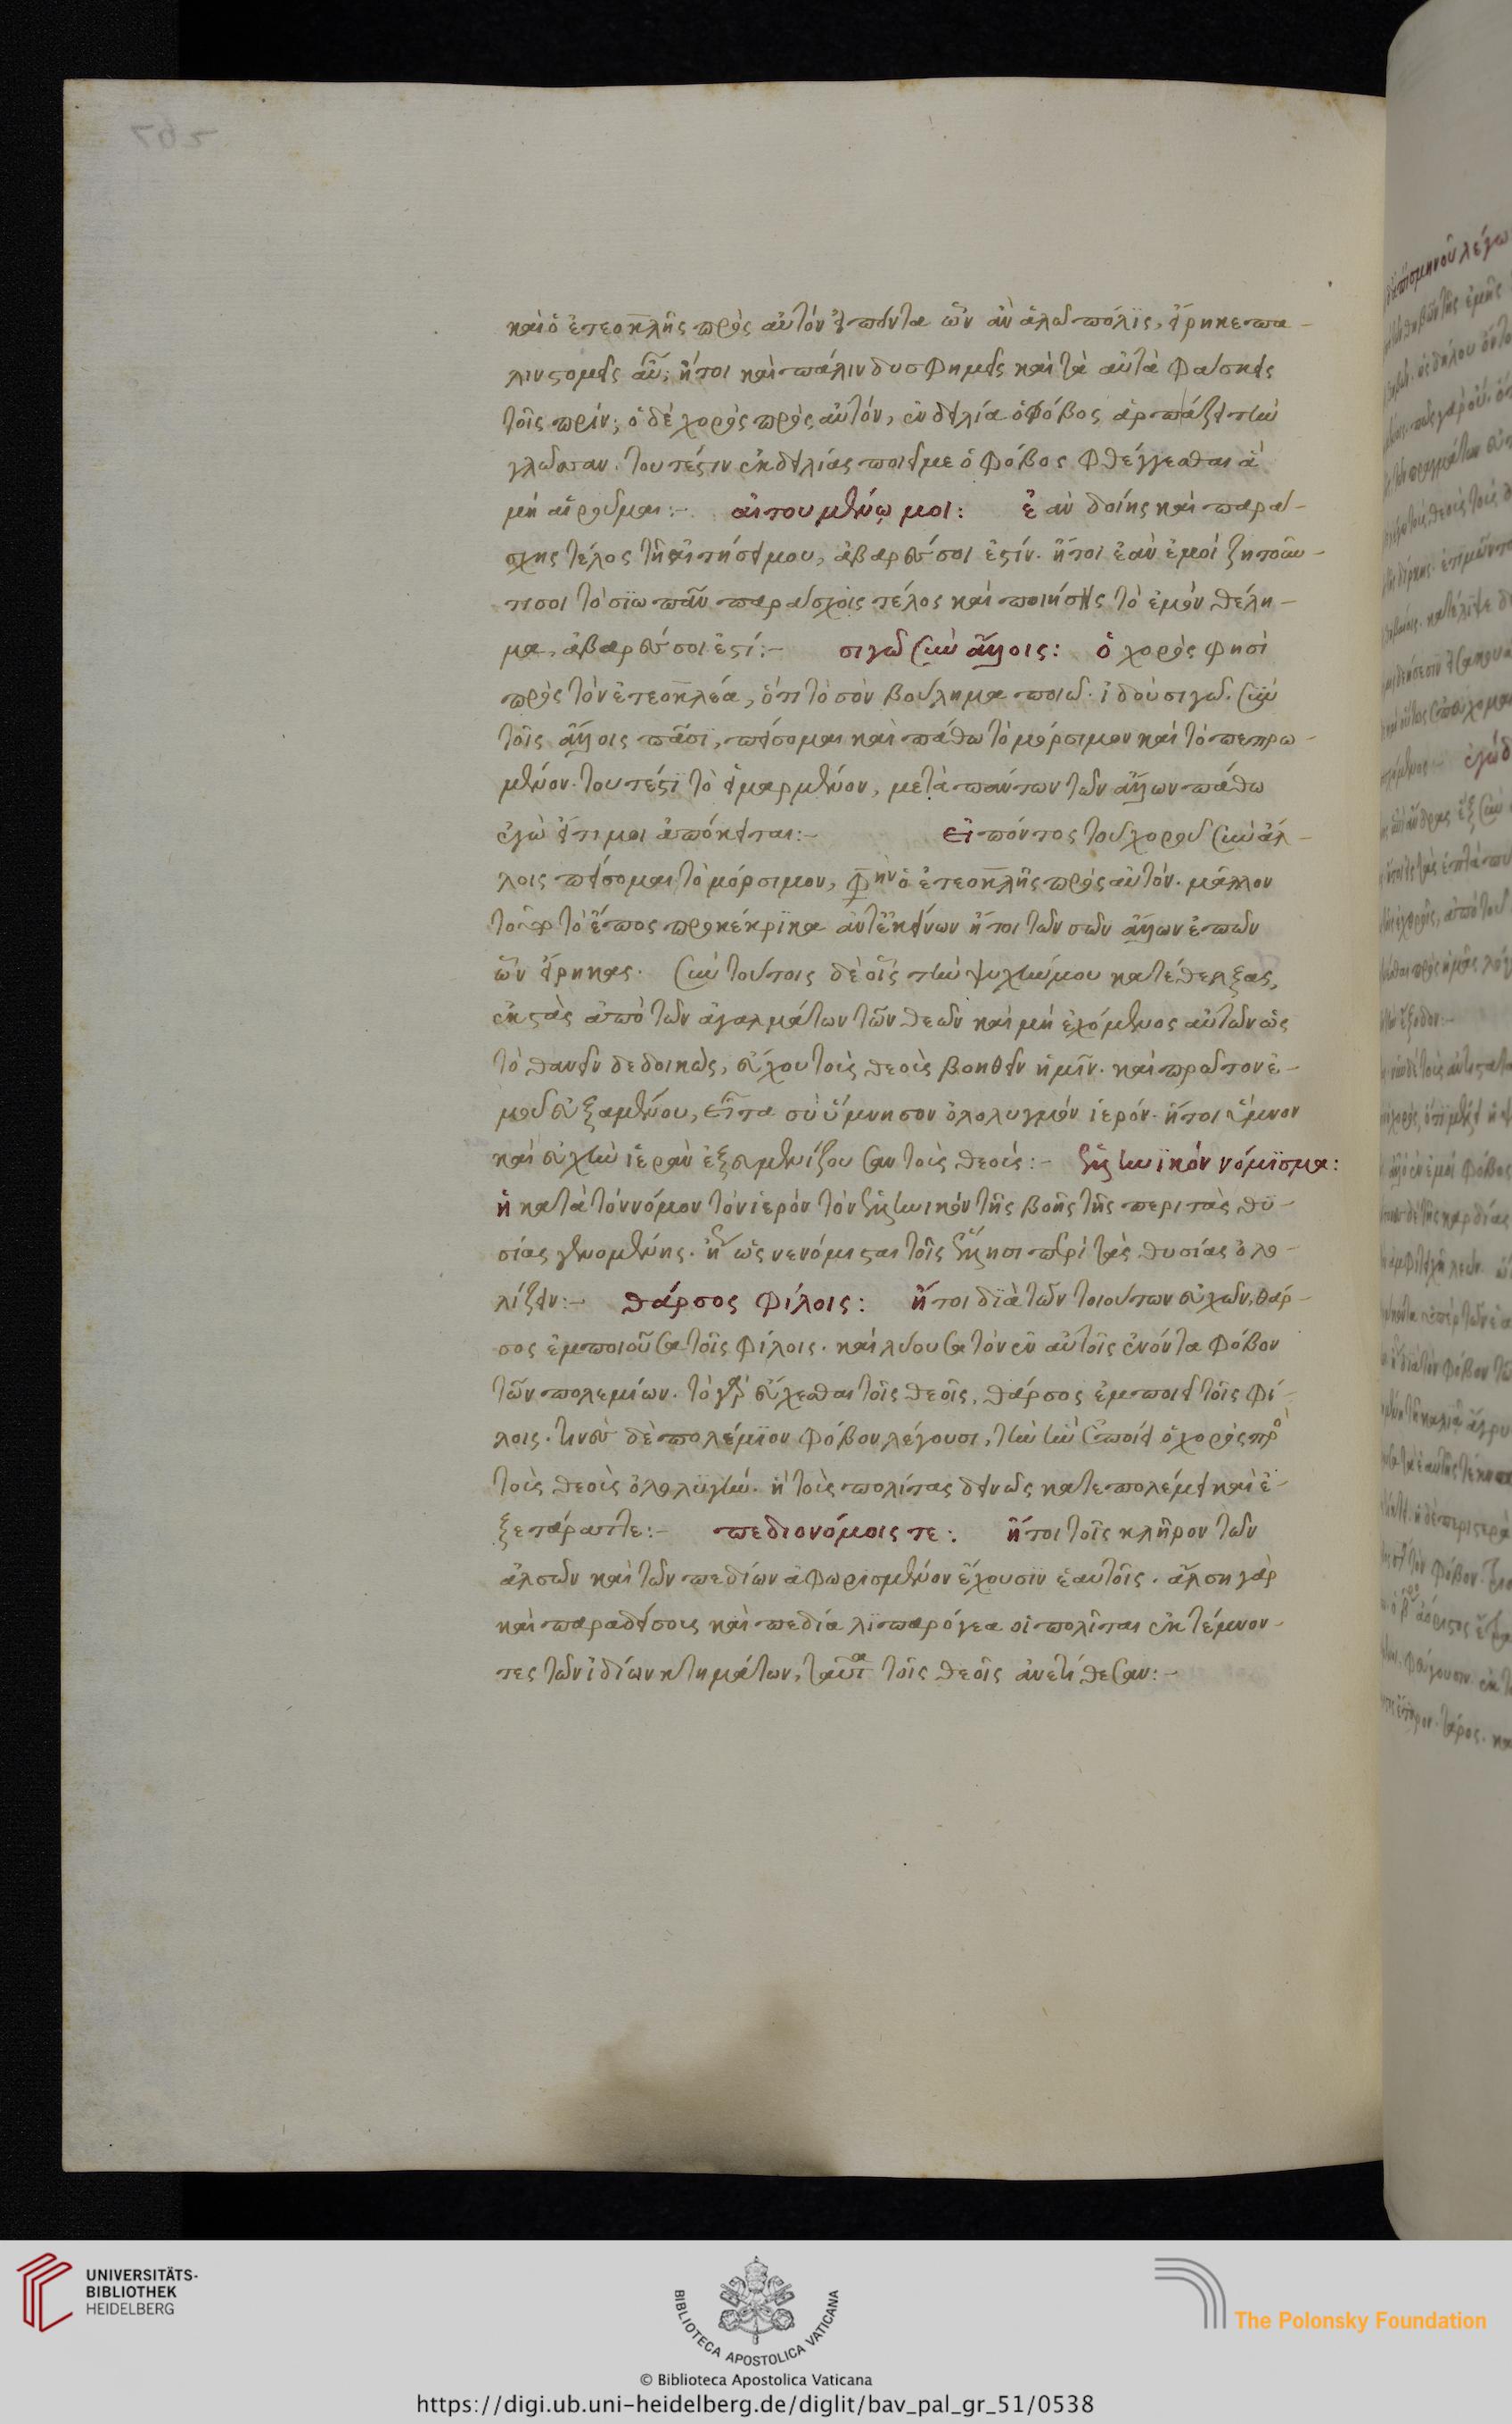 καὶ ὁ ἐτεοκλῆς πρὸς αὐτὸν εἰπόντα ὧν ἂν ἁλῶ πόλϊς, εἴρηκε πα-
λινστομεῖς αὖ; ἤτοι καὶ πάλιν δυσφημεῖς καὶ τὰ αὐτὰ φάσκεις
τοῖς πρίν; ὁ δὲ χορὸς πρὸς αὐτόν, ἐν δειλία ὁ φόβος ἁρπάζει τὴν
γλῶτταν. τουτέστιν ἐκ δειλίας ποιεῖ με ὁ φόβος φθέγγεσθαι ἃ
μὴ αἱροῦμαι:- αἰτουμένῳ μοι: ἐὰν δοίης καὶ παρά-
σχης τέλος τῆ αἰτήσει μου, ἀβαρές σοι ἐστίν. ἤτοι ἐὰν ἐμοὶ ζητοῦν-
τι σοι τὸ σϊωπᾶν παράσχοις τέλος καὶ ποιήσῃς τὸ ἐμὸν θέλη-
μα, ἀβαρές σοι ἐστί:- σιγῶ σὺν ἄλλοις: ὁ χορὸς φησὶ
πρὸς τὸν ἐτεοκλέα, ὅτι τὸ σὸν βούλημα ποιῶ. ἰδοὺ σιγῶ. σὺν
τοῖς ἄλλοις πᾶσϊ, πείσομαι καὶ πάθω τὸ μόρσιμον καὶ τὸ πεπρω-
μένον. τουτέστϊ τὸ εἱμαρμένον, μετὰ πάντων τῶν ἄλλων πάθω
ἐγὼ εἴ τι μοι ἀπόκειται:- εἰπόντος τοῦ χοροῦ σὺν ἄλ-
λοις πείσομαι τὸ μόρσιμον, φὴν ὁ ἐτεοκλῆς πρὸς αὐτόν. μᾶλλον
τοῦτο τὸ ἔπος προκέκρϊκα ἀντ' ἐκείνων ἤτοι τῶν σῶν ἄλλων ἐπῶν
ὧν εἴρηκας. σὺν τούτοις δὲ οἷς τὴν ψυχήν μου κατέθελξας,
ἐκστὰς ἀπὸ τῶν ἀγαλμάτων τῶν θεῶν καὶ μὴ ἐχόμενος αὐτῶν ὡς
τὸ θανεῖν δεδοικὼς, εὔχου τοὺς θεοὺς βοηθεῖν ἡμῖν. καὶ πρῶτον ἐ-
μοῦ εὐξαμένου, εἶτα σὺ ὕμνησον ὀλολυγμὸν ἱερόν. ἤτοι ὕμνον
καὶ εὐχὴν ἱερὰν ἐξευμενίζουσαν τοὺς θεούς:- ἑλληνϊκὸν νόμϊσμα:
ἢ κατὰ τὸν νόμον τὸν ἱερὸν τὸν ἑλληνικὸν τῆς βοῆς τῆς περὶ τὰς θϋ-
σίας γενομένης. ἢ ὡς νενόμισται τοῖς ἕλλησι περὶ τὰς θυσίας ὀλο-
λίζειν:- θάρσος φίλοις: ἤτοι διὰ τῶν τοιούτων εὐχῶν, θάρ-
σος ἐμποιοῦσα τοῖς φίλοις. καὶ λύουσα τὸν ἐν αὐτοῖς ἐνόντα φόβον
τῶν πολεμίων. τὸ γὰρ εὔχεσθαι τοῖς θεοῖς, θάρσος ἐμποιεῖ τοῖς φί-
λοις. τινὲς δὲ πολέμϊον φόβον λέγουσι, τὴν ἣν ἐποίει ὁ χορὸς πρὸ
τοὺς θεοὺς ὀλολϋγὴν. ἢ τοὺς πολίτας δεινῶς κατεπολέμει καὶ ἐ-
ξετάραττε:- πεδιονόμοις τε: ἤτοι τοῖς κλῆρον τῶν
ἀλσῶν καὶ τῶν πεδίων ἀφωρισμένον ἔχουσϊν ἑαυτοῖς. ἄλση γὰρ
καὶ παραδείσους καὶ πεδία λϊπαρόγεα οἱ πολῖται ἐκτέμνον-
τες τῶν ἰδίων κτημάτων, ταῦτα τοῖς θεοῖς ἀνετίθεσαν:-
UNIVERSITÄTS-
BIBLIOTHEK
HEIDELBERG
BIBLIOTECA APOSTOLICA VATICANA
The Polonsky Foundation
© Biblioteca Apostolica Vaticana
https://digi.ub.uni-heidelberg.de/diglit/bav_pal_gr_51/0538